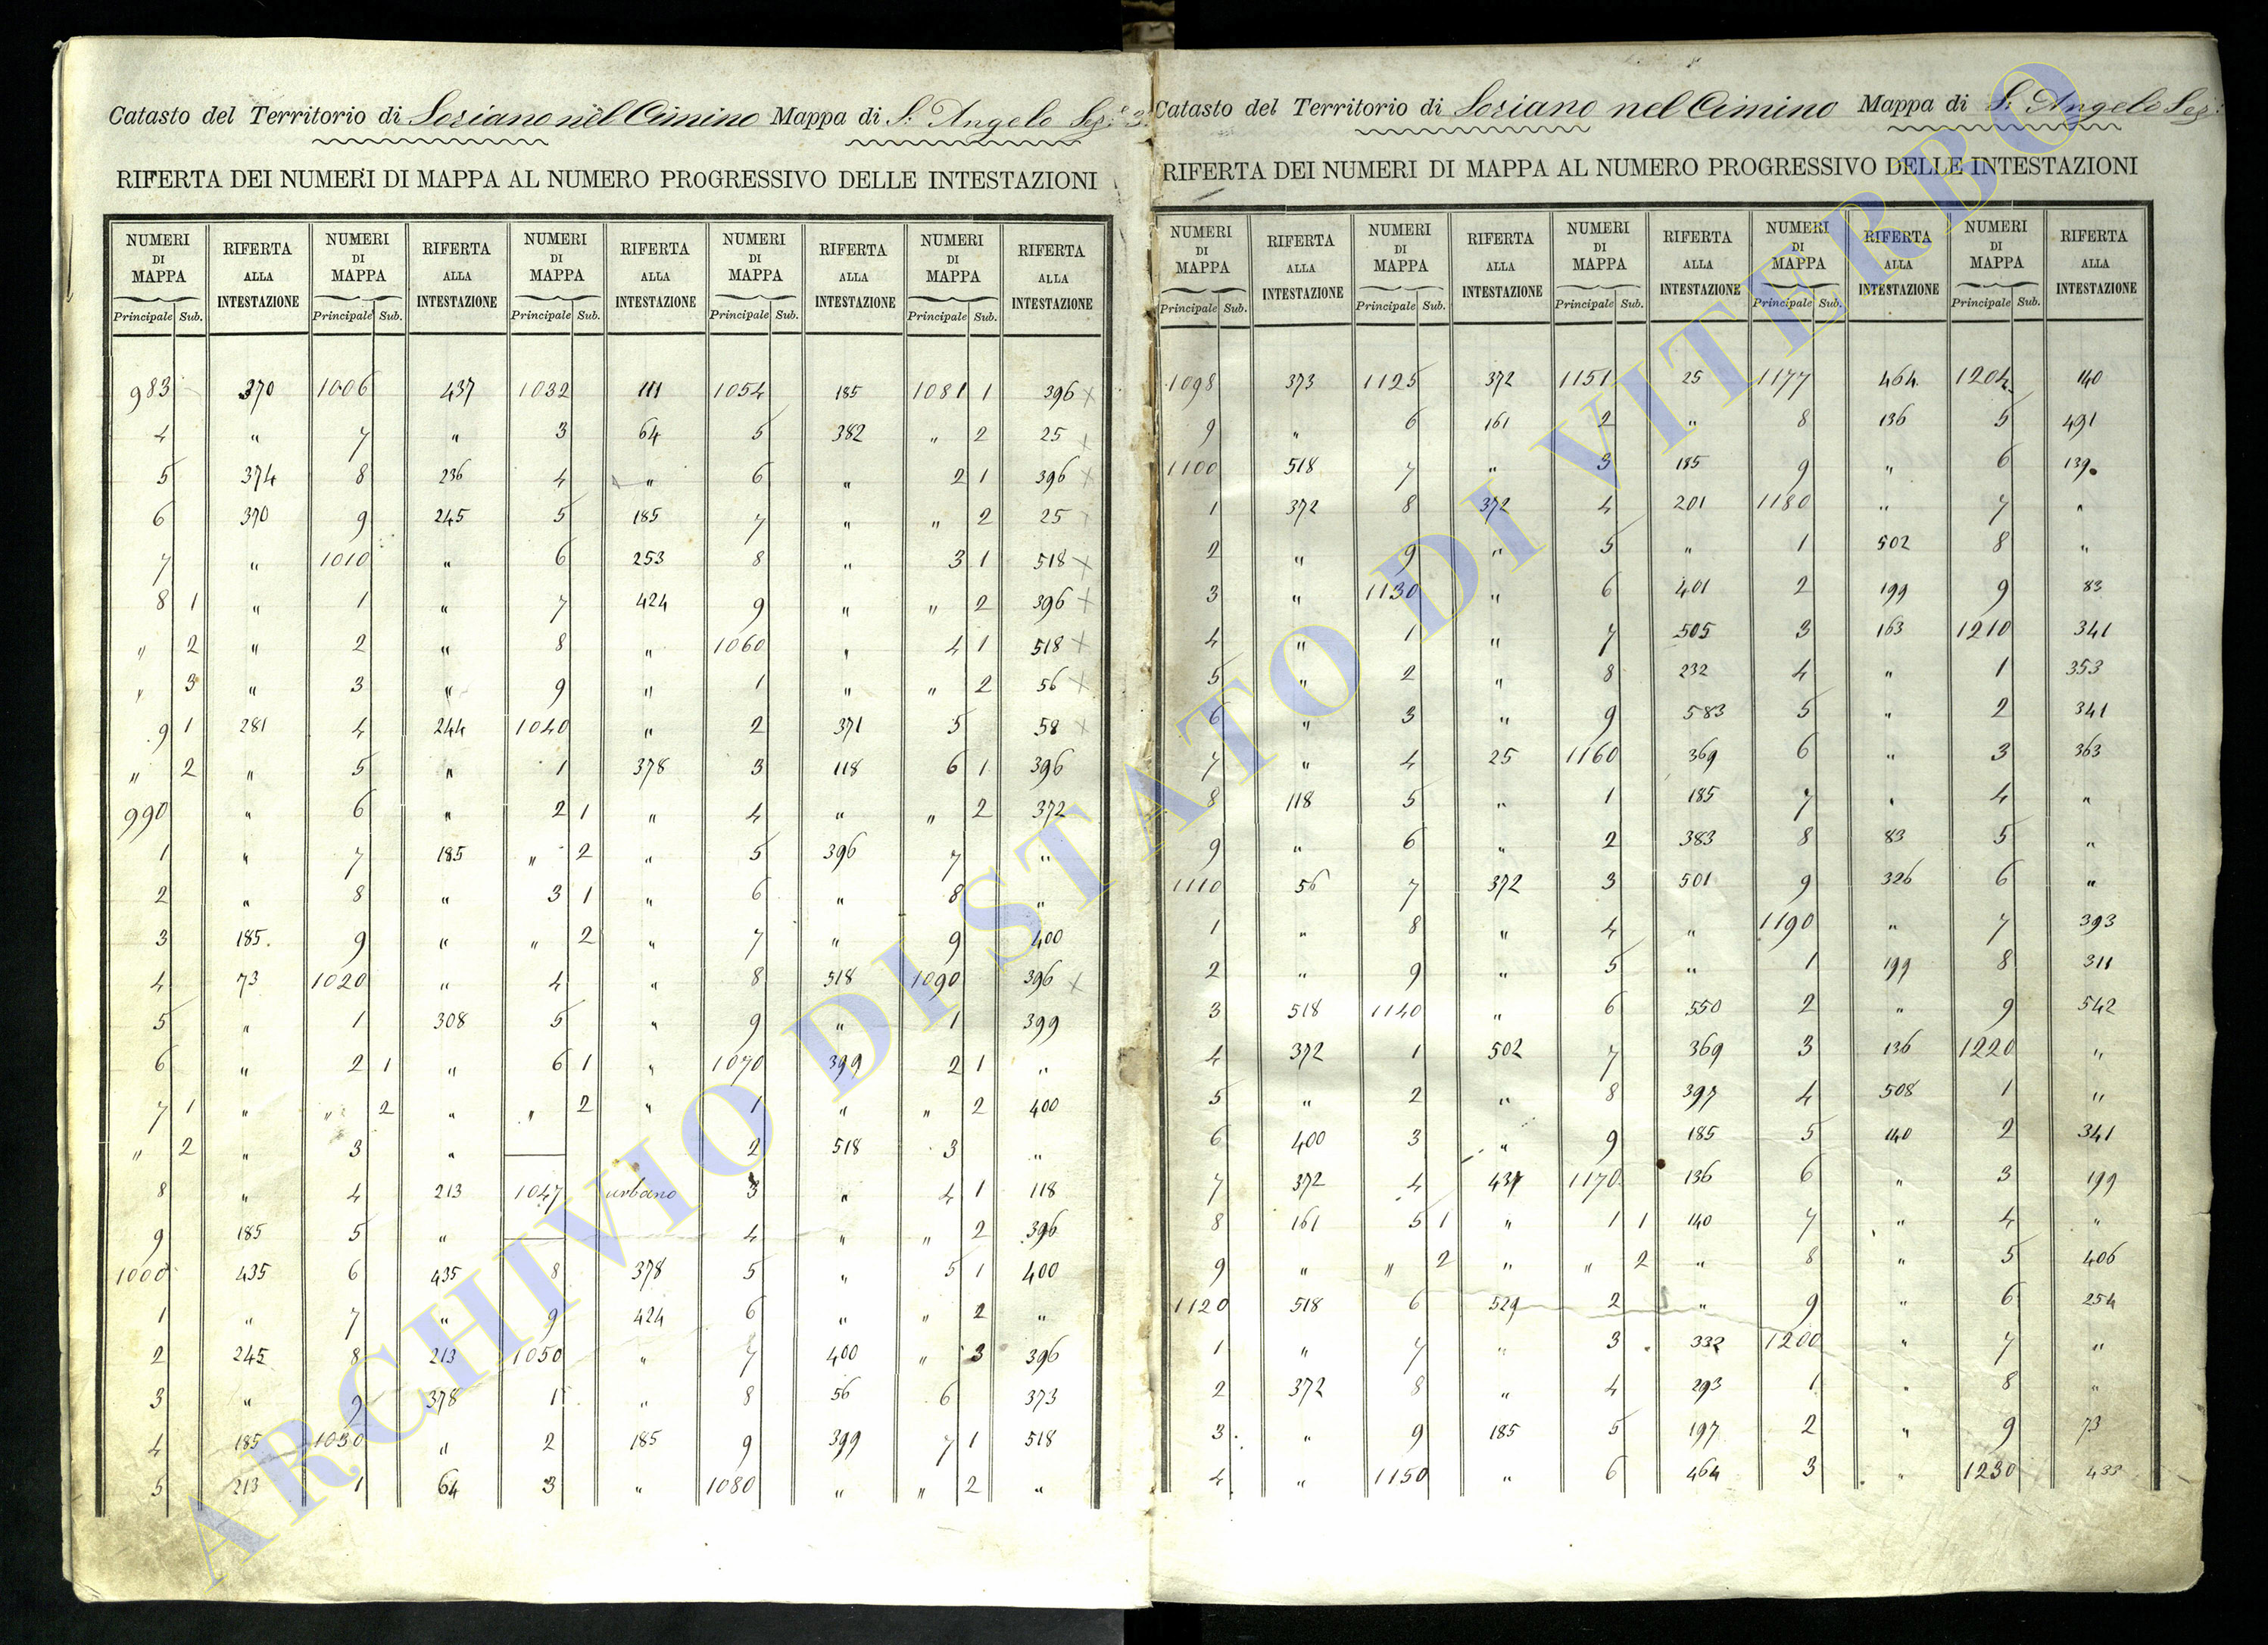 Catasto del Territorio di Soriano nel Cimino Mappa di S. Angelo Sez. 3
RIFERTA DEI NUMERI DI MAPPA AL NUMERO PROGRESSIVO DELLE INTESTAZIONI
NUMERI DI MAPPA RIFERTA ALLA INTESTAZIONE NUMERI DI MAPPA RIFERTA ALLA INTESTAZIONE NUMERI DI MAPPA RIFERTA ALLA INTESTAZIONE NUMERI DI MAPPA RIFERTA ALLA INTESTAZIONE NUMERI DI MAPPA RIFERTA ALLA INTESTAZIONE
Principale Sub. Principale Sub. Principale Sub. Principale Sub. Principale Sub.
983 370 1006 437 1032 111 1054 185 1081 1 396 ×
4 " 7 " 3 64 5 382 " 2 25 ×
5 374 8 236 4 " 6 " 2 1 396 ×
6 370 9 245 5 185 7 " " 2 25
7 " 1010 " 6 253 8 " 3 1 518 ×
8 1 " 1 " 7 424 9 " " 2 396 ×
" 2 " 2 " 8 " 1060 " 4 1 518 ×
" 3 " 3 " 9 " 1 " " 2 56 ×
9 1 281 4 244 1040 " 2 371 5 58 ×
" 2 " 5 " 1 378 3 118 6 1 396
990 " 6 " 2 1 " 4 " " 2 372
1 " 7 185 " 2 " 5 396 7 "
2 " 8 " 3 1 " 6 " 8 "
3 185 9 " " 2 " 7 " 9 400
4 73 1020 " 4 " 8 518 1090 396 ×
5 " 1 308 5 " 9 " 1 399
6 " 2 1 " 6 1 " 1070 399 2 1 "
7 1 " " 2 " " 2 " 1 " " 2 400
" 2 " 3 " 2 518 3 "
8 " 4 213 1047 urbano 3 " 4 1 118
9 185 5 " 4 " " 2 396
1000 435 6 435 8 378 5 " 5 1 400
1 " 7 " 9 424 6 " " 2 "
2 245 8 213 1050 " 7 400 " 3 396
3 " 9 378 1 " 8 56 6 373
4 185 1030 " 2 185 9 399 7 1 518
5 213 1 64 3 " 1080 " " 2 "
Catasto del Territorio di Soriano nel Cimino Mappa di S. Angelo Sez.
RIFERTA DEI NUMERI DI MAPPA AL NUMERO PROGRESSIVO DELLE INTESTAZIONI
NUMERI DI MAPPA RIFERTA ALLA INTESTAZIONE NUMERI DI MAPPA RIFERTA ALLA INTESTAZIONE NUMERI DI MAPPA RIFERTA ALLA INTESTAZIONE NUMERI DI MAPPA RIFERTA ALLA INTESTAZIONE NUMERI DI MAPPA RIFERTA ALLA INTESTAZIONE
Principale Sub. Principale Sub. Principale Sub. Principale Sub. Principale Sub.
1098 373 1125 372 1151 25 1177 464 1204 140
9 " 6 161 2 " 8 136 5 491
1100 518 7 " 3 185 9 " 6 139
1 372 8 372 4 201 1180 " 7 "
2 " 9 " 5 " 1 502 8 "
3 " 1130 " 6 401 2 199 9 83
4 " 1 " 7 505 3 163 1210 341
5 " 2 " 8 232 4 " 1 353
6 " 3 " 9 583 5 " 2 341
7 " 4 25 1160 369 6 " 3 363
8 118 5 " 1 185 7 " 4 "
9 " 6 " 2 383 8 83 5 "
1110 56 7 372 3 501 9 326 6 "
1 " 8 " 4 " 1190 " 7 393
2 " 9 " 5 " 1 199 8 311
3 518 1140 " 6 550 2 " 9 542
4 372 1 502 7 369 3 136 1220 "
5 " 2 " 8 397 4 508 1 "
6 400 3 " 9 185 5 140 2 341
7 372 4 437 1170 136 6 " 3 199
8 161 5 1 " 1 1 140 7 " 4 "
9 " " 2 " " 2 " 8 " 5 406
1120 518 6 529 2 " 9 " 6 254
1 " 7 " 3 332 1200 " 7 "
2 372 8 " 4 293 1 " 8 "
3 " 9 185 5 197 2 " 9 73
4 " 1150 " 6 464 3 " 1230 433
ARCHIVIO DI STATO DI VITERBO